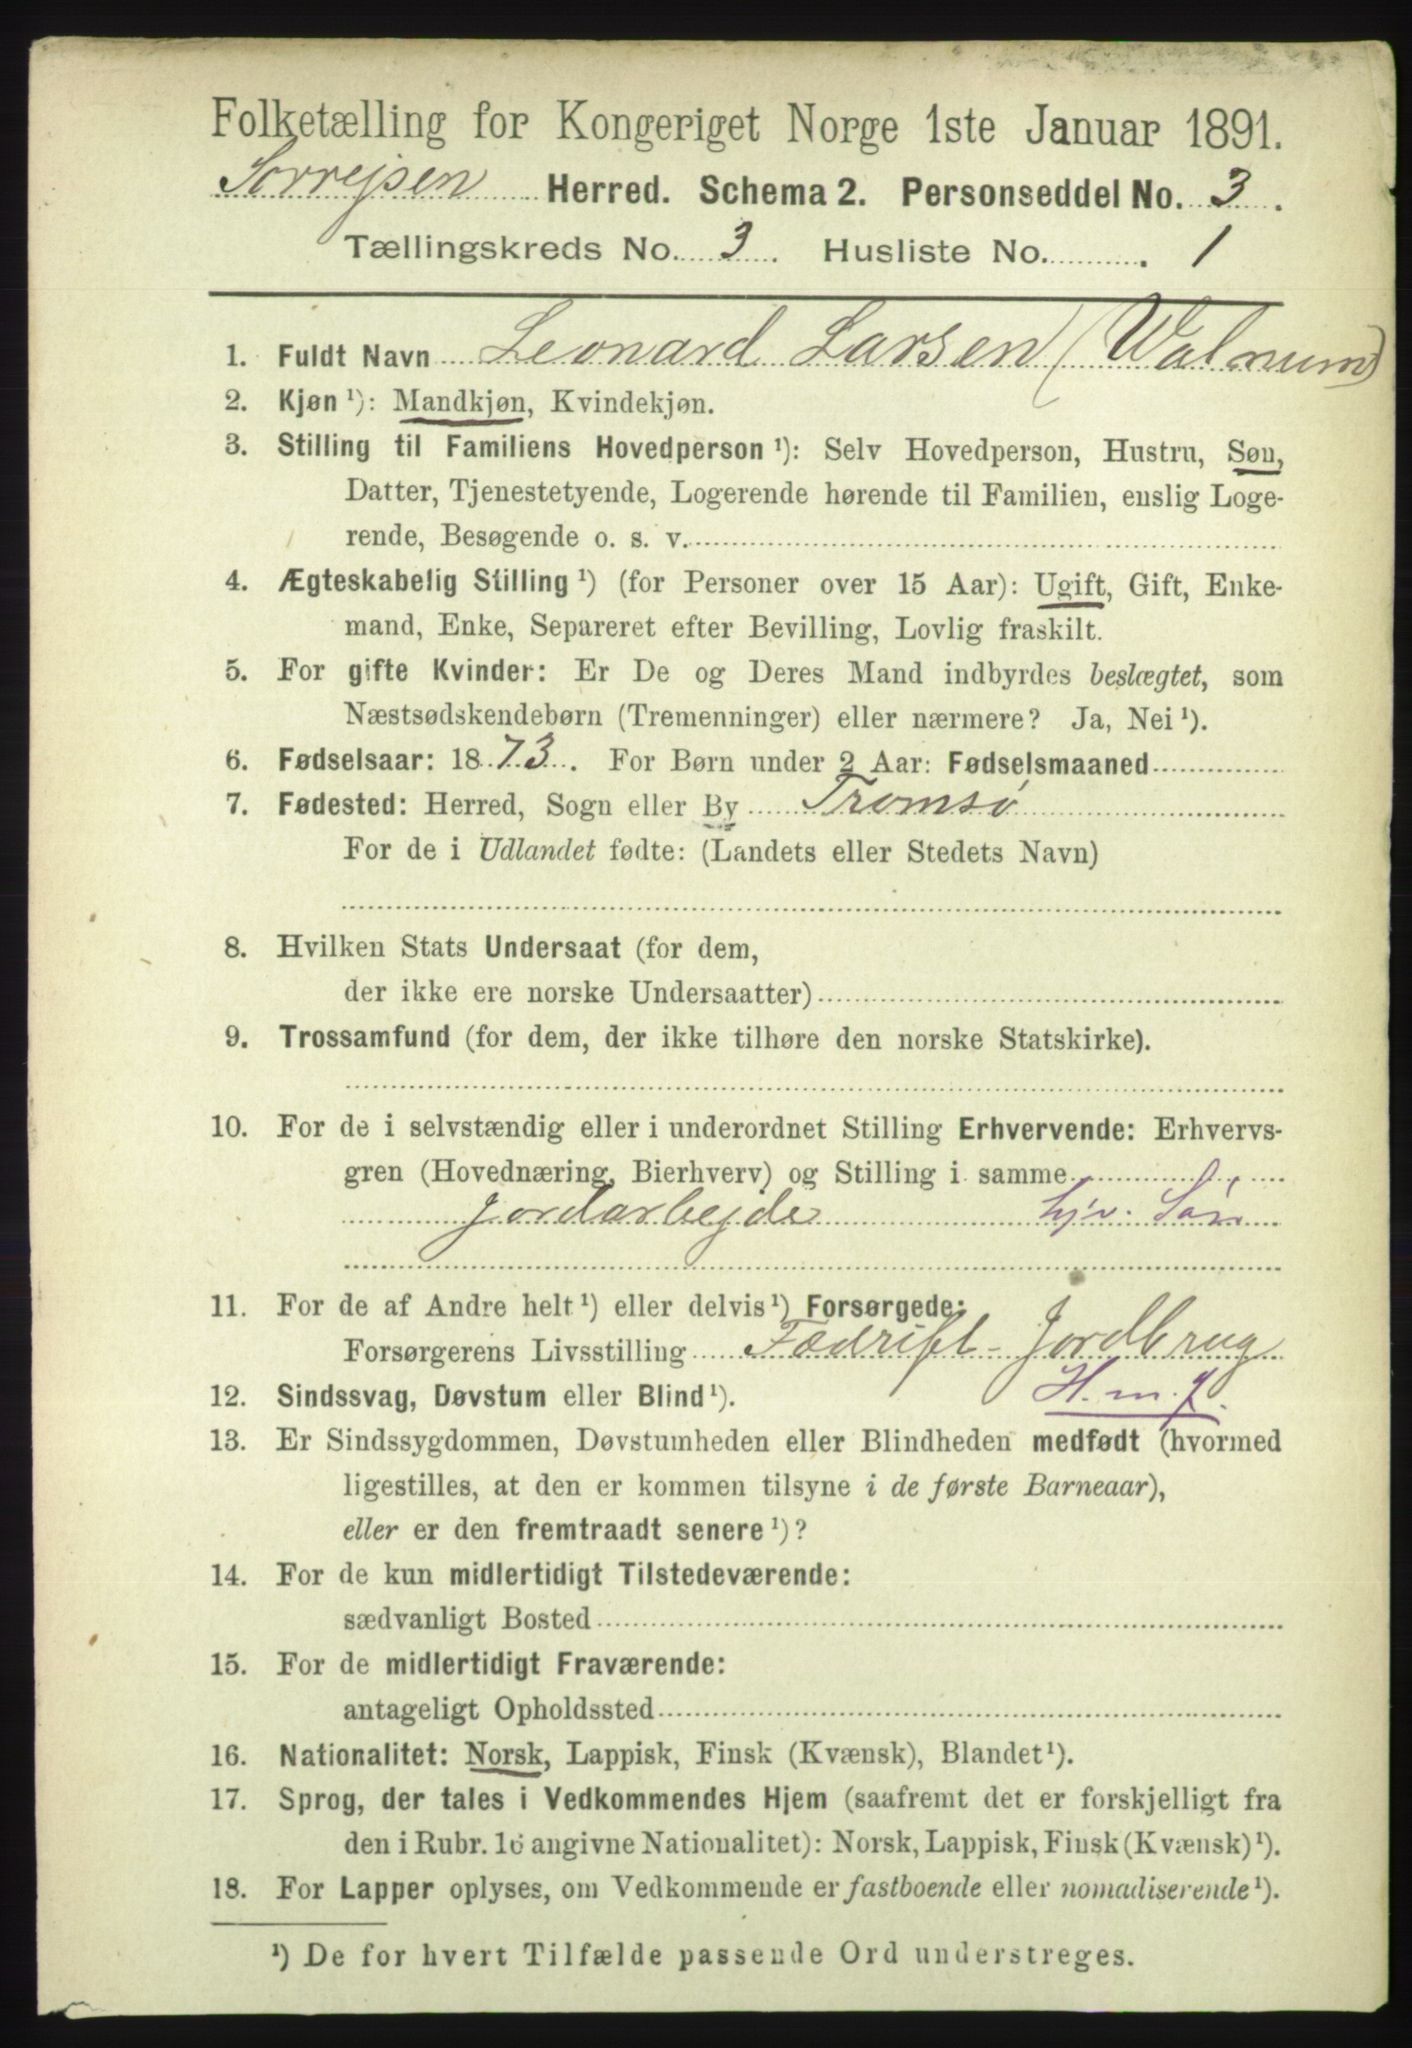 Folketælling for Kongeriget Norge 1ste Januar 1891.
Sørrejsen Herred. Schema 2. Personseddel No. 3.
Tællingskreds No. 3. Husliste No. 1
1. Fuldt Navn Leonard Larsen (Walnum)
2. Kjøn ¹): Mandkjøn, Kvindekjøn.
3. Stilling til Familiens Hovedperson ¹): Selv Hovedperson, Hustru, Søn,
Datter, Tjenestetyende, Logerende hørende til Familien, enslig Loge-
rende, Besøgende o. s. v.
4. Ægteskabelig Stilling ¹) (for Personer over 15 Aar): Ugift, Gift, Enke-
mand, Enke, Separeret efter Bevilling, Lovlig fraskilt.
5. For gifte Kvinder: Er De og Deres Mand indbyrdes beslægtet, som
Næstsødskendebørn (Tremenninger) eller nærmere? Ja, Nei ¹).
6. Fødselsaar: 1873. For Børn under 2 Aar: Fødselsmaaned
7. Fødested: Herred, Sogn eller By Tromsø
For de i Udlandet fødte: (Landets eller Stedets Navn)
8. Hvilken Stats Undersaat (for dem,
der ikke ere norske Undersaatter)
9. Trossamfund (for dem, der ikke tilhøre den norske Statskirke).
10. For de i selvstændig eller i underordnet Stilling Erhvervende: Erhvervs-
gren (Hovednæring, Bierhverv) og Stilling i samme
Jordarbejde hjv. Søn
11. For de af Andre helt ¹) eller delvis ¹) Forsørgede:
Forsørgerens Livsstilling Fædrift - Jordbrug
12. Sindssvag, Døvstum eller Blind ¹). H. m. J.
13. Er Sindssygdommen, Døvstumheden eller Blindheden medfødt (hvormed
ligestilles, at den er kommen tilsyne i de første Barneaar),
eller er den fremtraadt senere ¹)?
14. For de kun midlertidigt Tilstedeværende:
sædvanligt Bosted
15. For de midlertidigt Fraværende:
antageligt Opholdssted
16. Nationalitet: Norsk, Lappisk, Finsk (Kvænsk), Blandet ¹).
17. Sprog, der tales i Vedkommendes Hjem (saafremt det er forskjelligt fra
den i Rubr. 16 angivne Nationalitet): Norsk, Lappisk, Finsk (Kvænsk) ¹).
18. For Lapper oplyses, om Vedkommende er fastboende eller nomadiserende ¹).
¹) De for hvert Tilfælde passende Ord understreges.